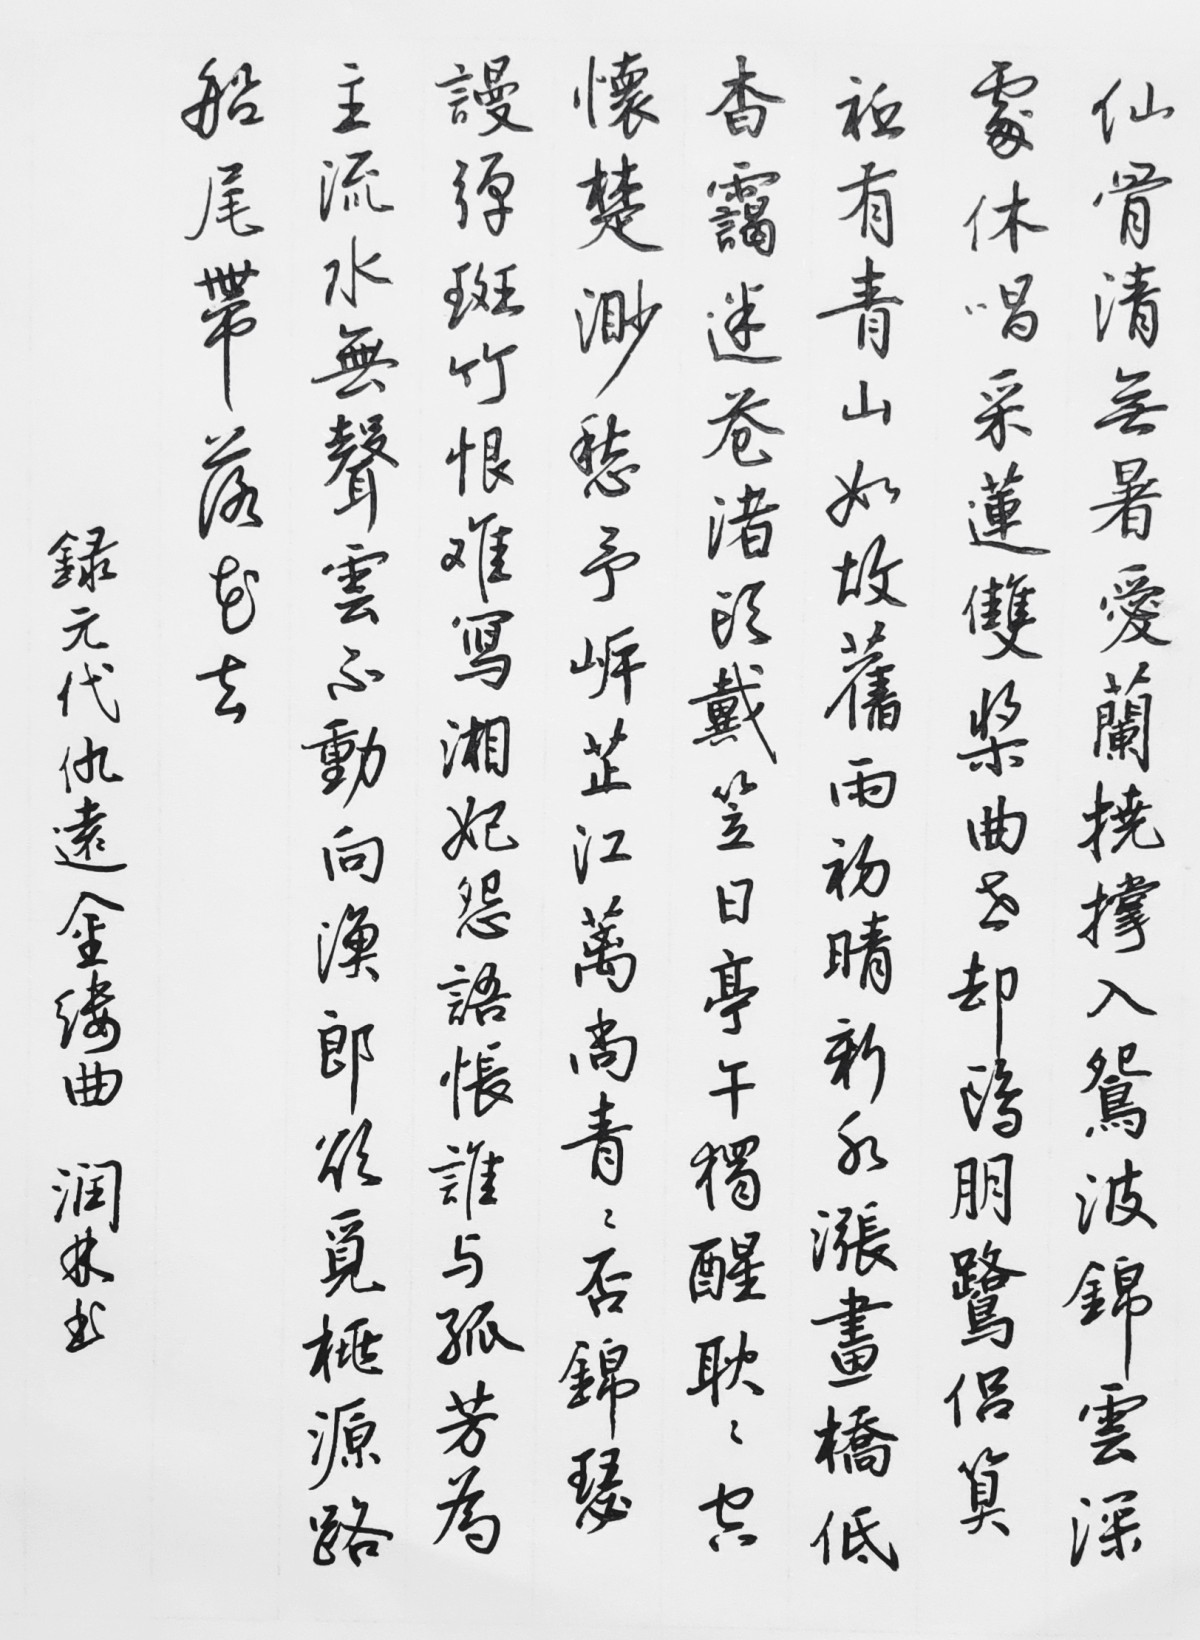 仙骨清無暑愛蘭橈撐入鴛波錦雲深
處休唱采蓮雙槳曲老却鷗朋鷺侣算
祗有青山如故舊雨初晴新水漲畫橋低
杳靄迷苍渚頭戴笠日亭午獨醒耿〻空
懷楚渺愁予岸芷江蓠尚青〻否錦瑟
謾彈斑竹恨难寫湘妃怨語悵誰与孤芳為
主流水無聲雲不動向漁郎欲覓桃源路
船尾帶落花去
録元代仇遠金縷曲 润林书